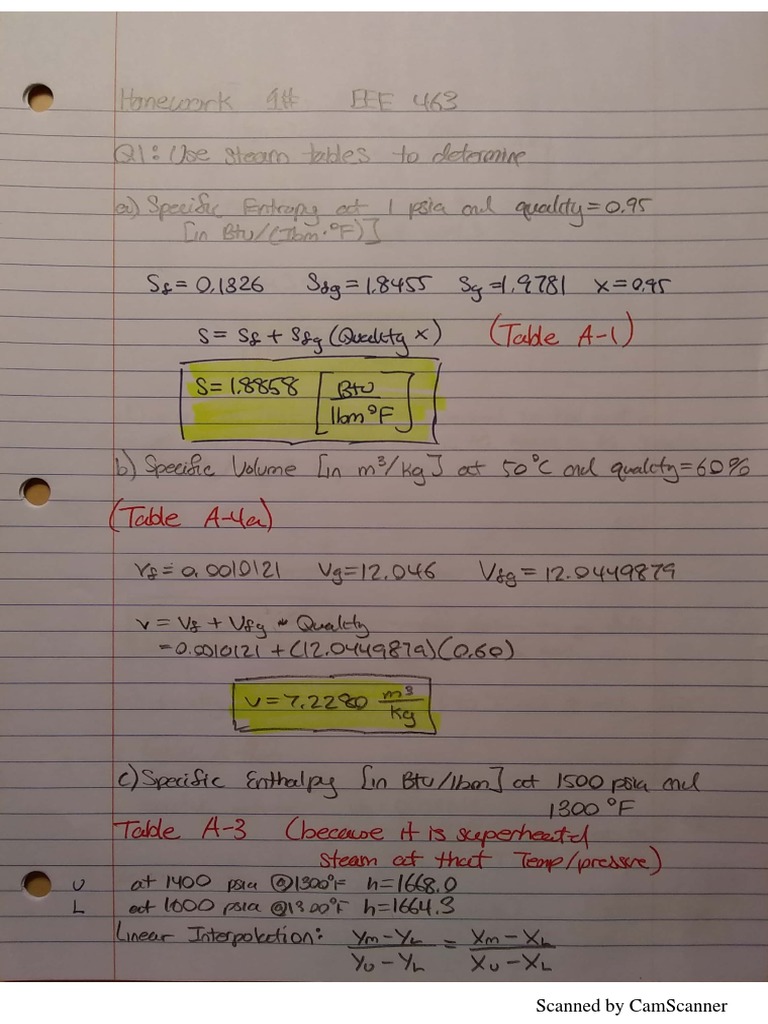 Homework 1# EEE 463
Q1: Use steam tables to determine
a) Specific Entropy at 1 psia and quality = 0.95
[in Btu/(lbm·°F)]
Sf = 0.1326 Sfg = 1.8455 Sg = 1.9781 x = 0.95
S = Sf + Sfg (Quality x) (Table A-1)
S = 1.8858 [Btu / lbm°F]
b) Specific Volume [in m³/kg] at 50°C and quality = 60%
(Table A-4a)
Vf = 0.0010121 Vg = 12.046 Vfg = 12.0449879
v = Vf + Vfg * Quality
= 0.0010121 + (12.0449879)(0.60)
v = 7.2280 m³/kg
c) Specific Enthalpy [in Btu/lbm] at 1500 psia and
1300 °F
Table A-3 (because it is superheated
steam at that Temp/pressure)
U at 1400 psia @1300°F h = 1668.0
L at 1600 psia @1300°F h = 1664.3
Linear Interpolation: (YM - YL)/(YU - YL) = (XM - XL)/(XU - XL)
Scanned by CamScanner